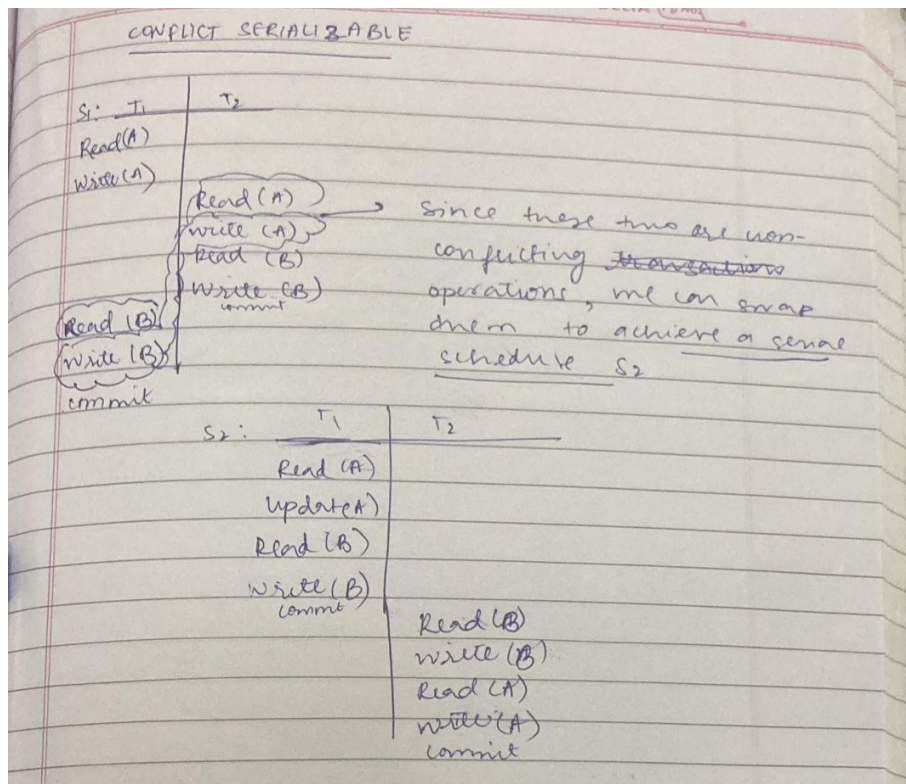 CONFLICT SERIALIZABLE
S1: T1 T2
Read(A)
Write(A)
Read(A)
write(A)
Read (B)
Write (B)
commit
Read (B)
Write (B)
commit
Since these two are non-
conflicting transactions
operations, we can swap
them to achieve a serial
schedule S2
S2: T1 T2
Read (A)
Update(A)
Read (B)
write (B)
commit
Read (B)
write (B)
Read (A)
write (A)
commit